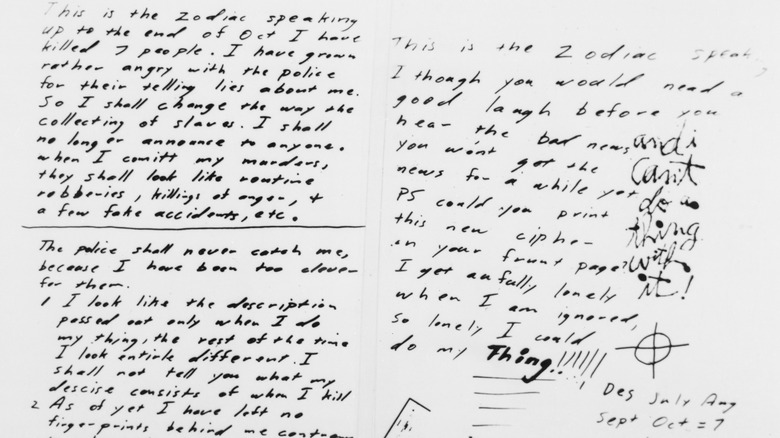 This is the Zodiac speaking
up to the end of Oct I have
killed 7 people. I have grown
rather angry with the police
for their telling lies about me.
So I shall change the way the
collecting of slaves. I shall
no longer announce to anyone.
when I comitt my murders,
they shall look like routine
robberies, killings of anger, +
a few fake accidents, etc.
The police shall never catch me,
because I have been too clever
for them.
1 I look like the description
passed out only when I do
my thing, the rest of the time
I look entirle different. I
shall not tell you what my
descise consists of when I kill
2 As of yet I have left no
fingerprints behind me contrary
This is the Zodiac speaking
I though you would need a
good laugh before you
hear the bad news
you won't get the
news for a while yet
PS could you print
this new cipher
in your frunt page?
I get awfully lonely
when I am ignored,
So lonely I could
do my Thing!!!!!!
and i
can't
do a
thing
with
it!
Des July Aug
Sept Oct = 7